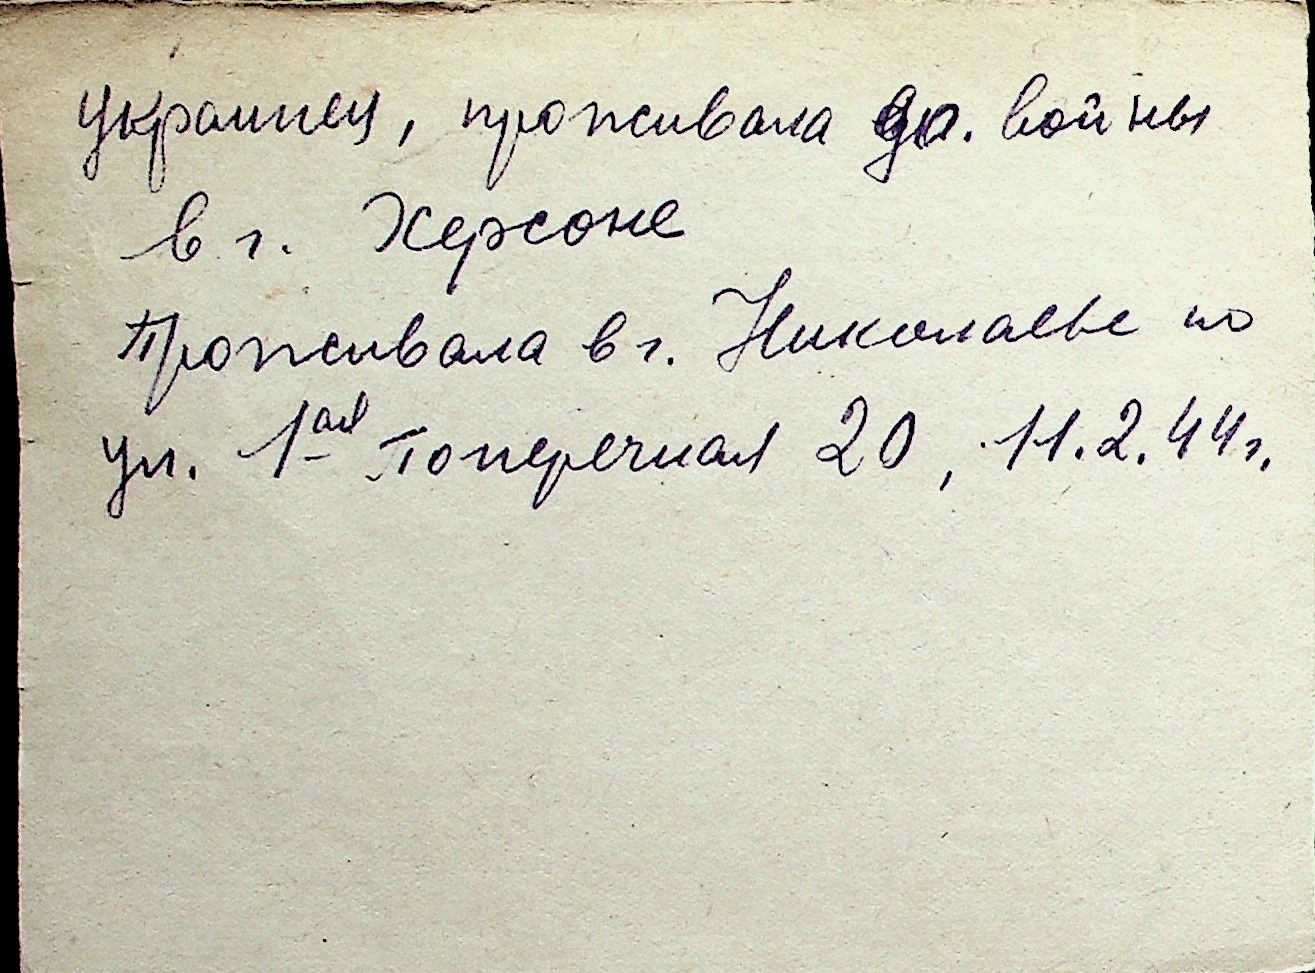 украинец, проживала до. войны
в г. Херсоне
Проживала в г. Николаеве по
ул. 1ая Поперечная 20, 11.2.44г.